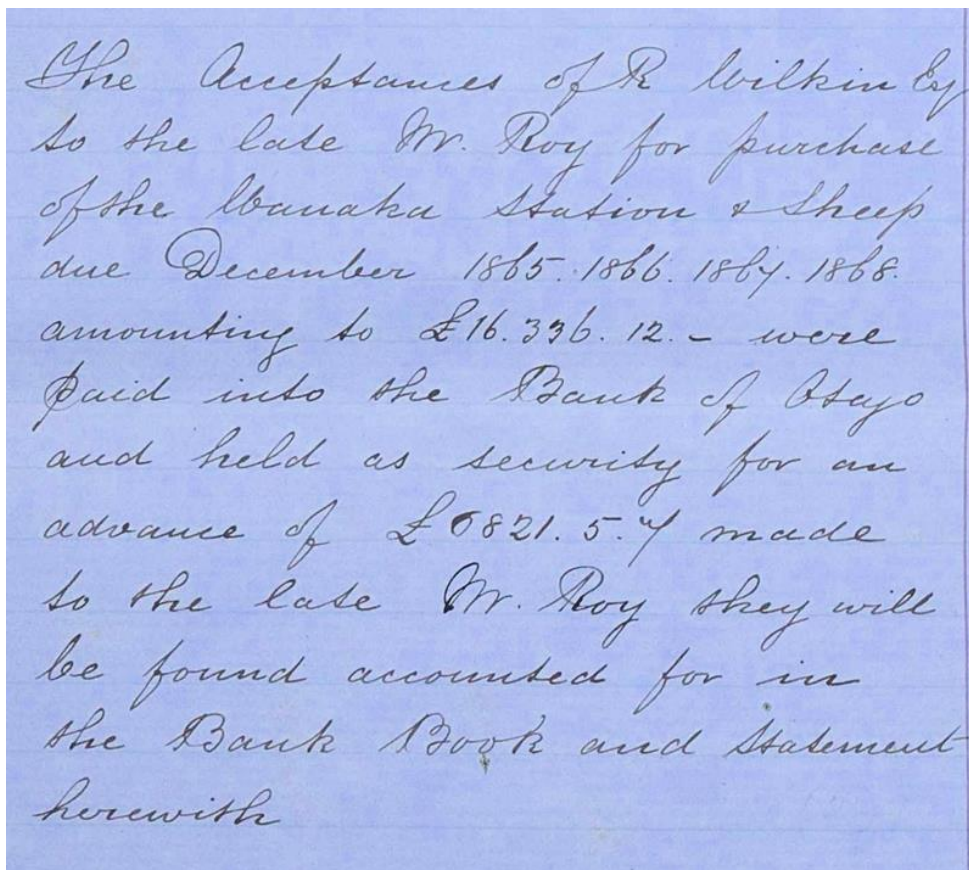 The Acceptances of R Wilkin Esq
to the late Mr. Roy for purchase
of the Wanaka Station & Sheep
due December 1865. 1866. 1867. 1868.
amounting to £16.336.12.- were
paid into the Bank of Otago
and held as security for an
advance of £6821.5.7 made
to the late Mr. Roy they will
be found accounted for in
the Bank Book and Statement
herewith